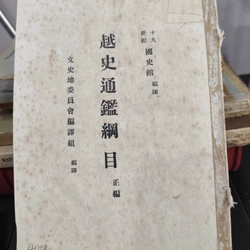 十九世紀 國史館 編譯
越史通鑑綱目 正編
文史地委員會編譯組 編譯